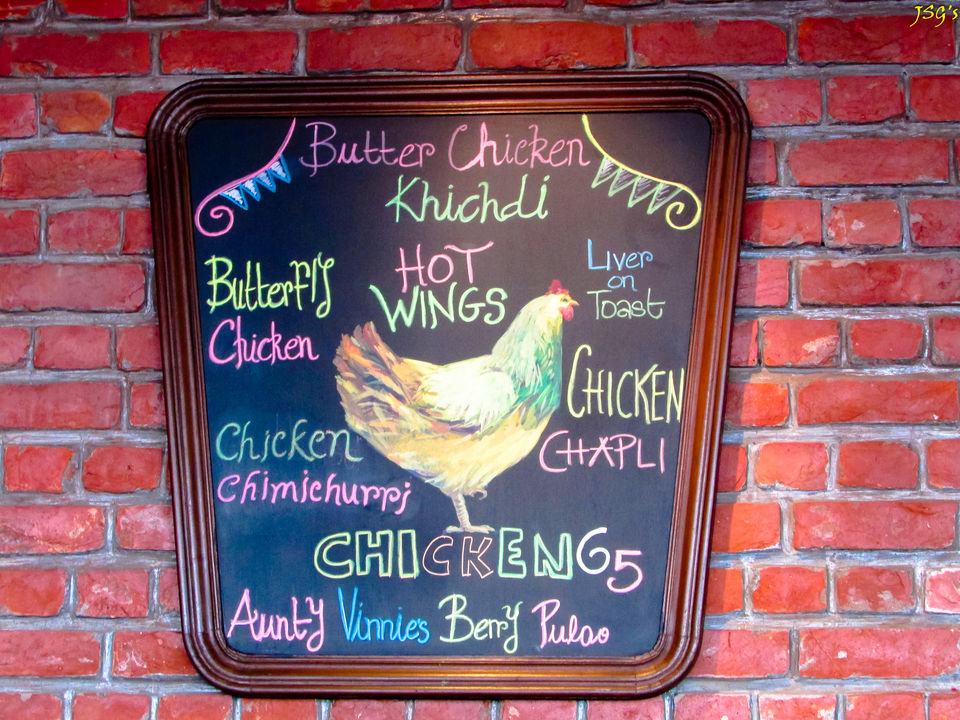 JSG's
Butter Chicken
Khichdi
Butterfly
Chicken
HOT
WINGS
Liver
on
Toast
CHICKEN
CHAPLI
Chicken
Chimichurri
CHICKEN 65
Aunty Vinnies Berry Pulao